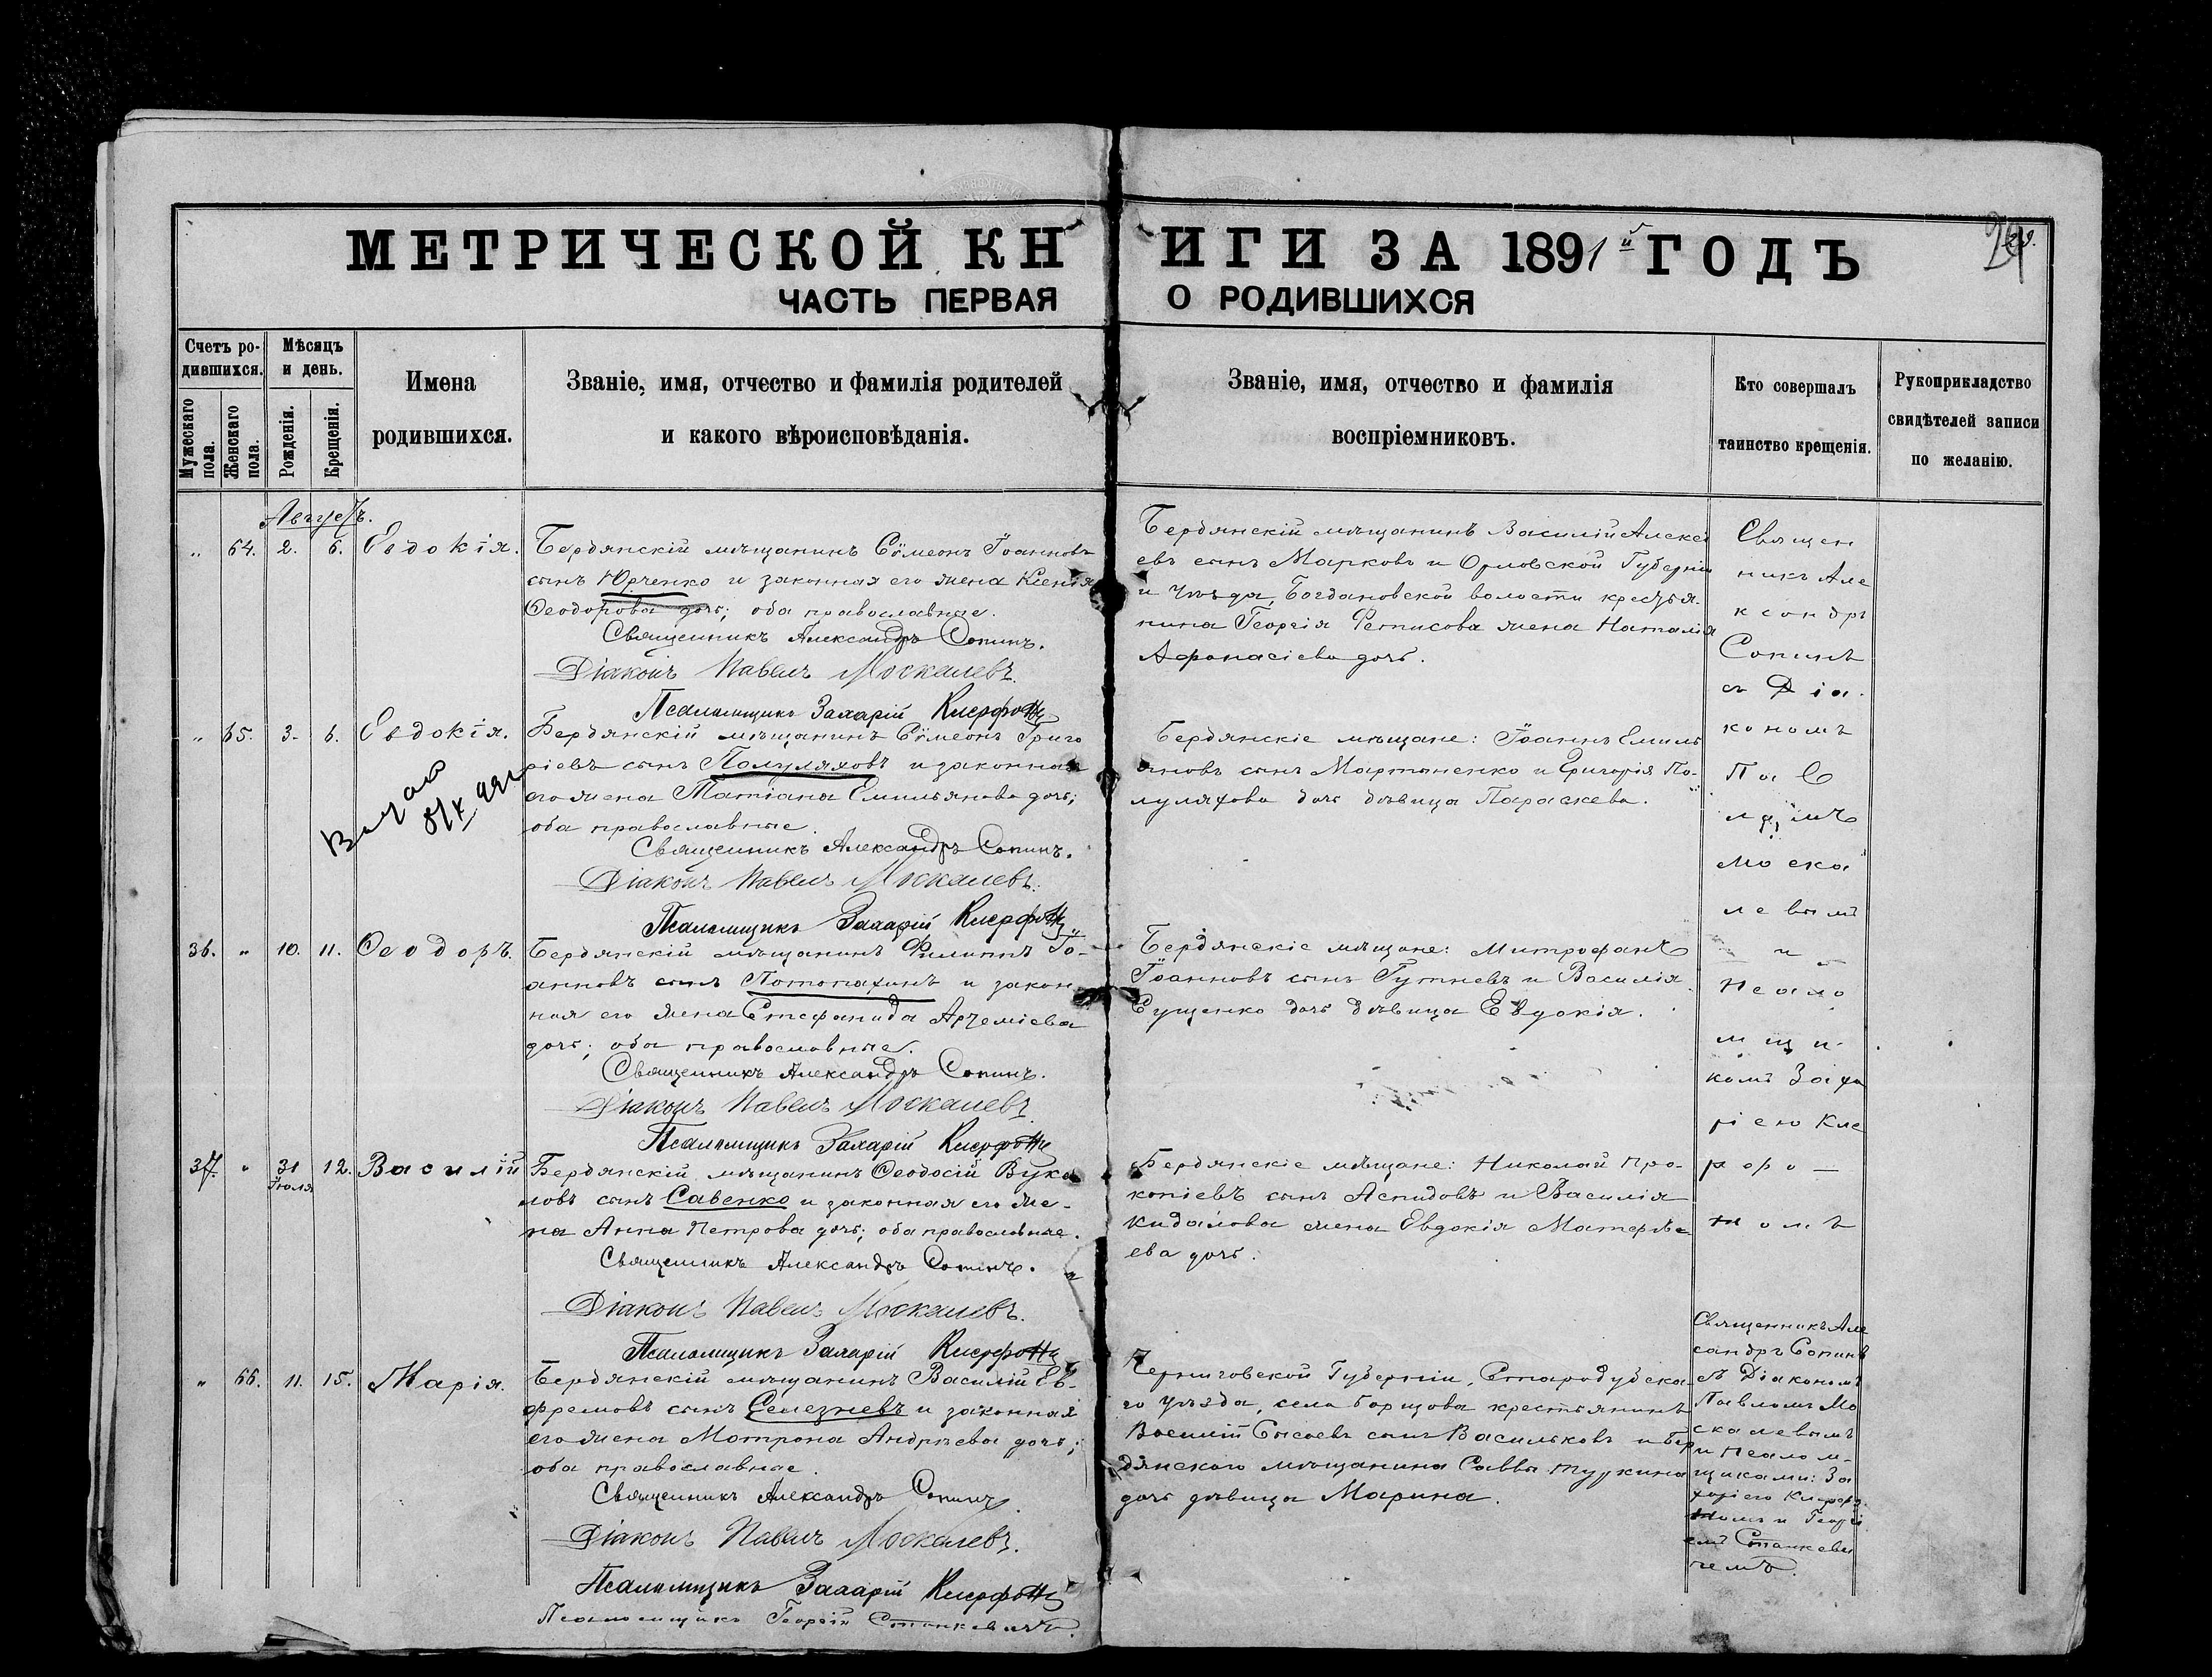 МЕТРИЧЕСКОЙ КНИГИ ЗА 1891й ГОДЪ
29.
ЧАСТЬ ПЕРВАЯ О РОДИВШИХСЯ
Счетъ ро-
дившихся.
Мужескаго пола.
Женскаго пола.
Мѣсяцъ
и день.
Рожденія.
Крещенія.
Имена
родившихся.
Званіе, имя, отчество и фамилія родителей
и какого вѣроисповѣданія.
Званіе, имя, отчество и фамилія
воспріемниковъ.
Кто совершалъ
таинство крещенія.
Рукоприкладство
свидѣтелей записи
по желанію.
Августъ.
„ 64. 2. 6. Евдокія.
Бердянскій мѣщанинъ Сѵмеонъ Іоанновъ
сынъ Юрченко и законная его жена Ксенія
Ѳеодорова дочь; оба православные.
Священникъ Александръ Сопинъ.
Діаконъ Павелъ Москалевъ.
Псаломщикъ Захарій
Бердянскій мѣщанинъ Василій Алексѣ
евъ сынъ Марковъ и Орловской Губерніи
и уѣзда, Богдановской волости крестья-
нина Георгія Фетисова жена Наталія
Афонасіева дочь.
„ 65. 3. 6. Евдокія.
Бердянскій мѣщанинъ Сѵмеонъ Григо
ріевъ сынъ Полуляховъ и законная
его жена Татіана Емильянова дочь;
оба православные.
Священникъ Александръ Сопинъ.
Діаконъ Павелъ Москалевъ.
Псаломщикъ Захарій
Бердянскіе мѣщане: Іоаннъ Емиль
яновъ сынъ Мартыненко и Григорія По-
луляхова дочь дѣвица Параскева.
36. „ 10. 11. Ѳеодоръ.
Бердянскій мѣщанинъ Филиппъ Іо-
анновъ сынъ Потопахинъ и закон
ная его жена Стефанида Артеміева
дочь; оба православные.
Священникъ Александръ Сопинъ.
Діаконъ Павелъ Москалевъ.
Псаломщикъ Захарій
Бердянскіе мѣщане: Митрофанъ
Іоанновъ сынъ Гутневъ и Василія
Сущенко дочь дѣвица Евдокія.
37. „ 31 Іюля 12. Василій
Бердянскій мѣщанинъ Ѳеодосій Вуко
ловъ сынъ Савенко и законная его же-
на Анна Петрова дочь; оба православные.
Священникъ Александръ Сопинъ.
Діаконъ Павелъ Москалевъ.
Псаломщикъ Захарій
Бердянскіе мѣщане: Николай Про-
копіевъ сынъ Аспидовъ и Василія
Кидалова жена Евдокія Матфѣ
ева дочь.
Священ
никъ Але
ксандръ
Сопинъ
съ Діа-
кономъ
Пав
ломъ
Моска
левымъ
и
Псало
мщи-
комъ Заха
ріею
„ 66. 11. 15. Марія.
Бердянскій мѣщанинъ Василій Ев-
фремовъ сынъ Селезневъ и законная
его жена Матрона Андрѣева дочь;
оба православные.
Священникъ Александръ Сопинъ.
Діаконъ Павелъ Москалевъ.
Псаломщикъ Захарій
Псаломщикъ Георгій Станкевичъ.
Черниговской Губерніи, Стародубска-
го уѣзда, села Борщова крестьянинъ
Василій Сысоевъ сынъ Васильковъ и Бер
дянскаго мѣщанина Саввы Туркина
дочь дѣвица Марина.
Священникъ Але
сандръ Сопинъ
съ Діакономъ
Павломъ Мо
скалевымъ
и Псалом-
щиками: За
харіею
и Георгі
емъ Станкеви
чемъ.